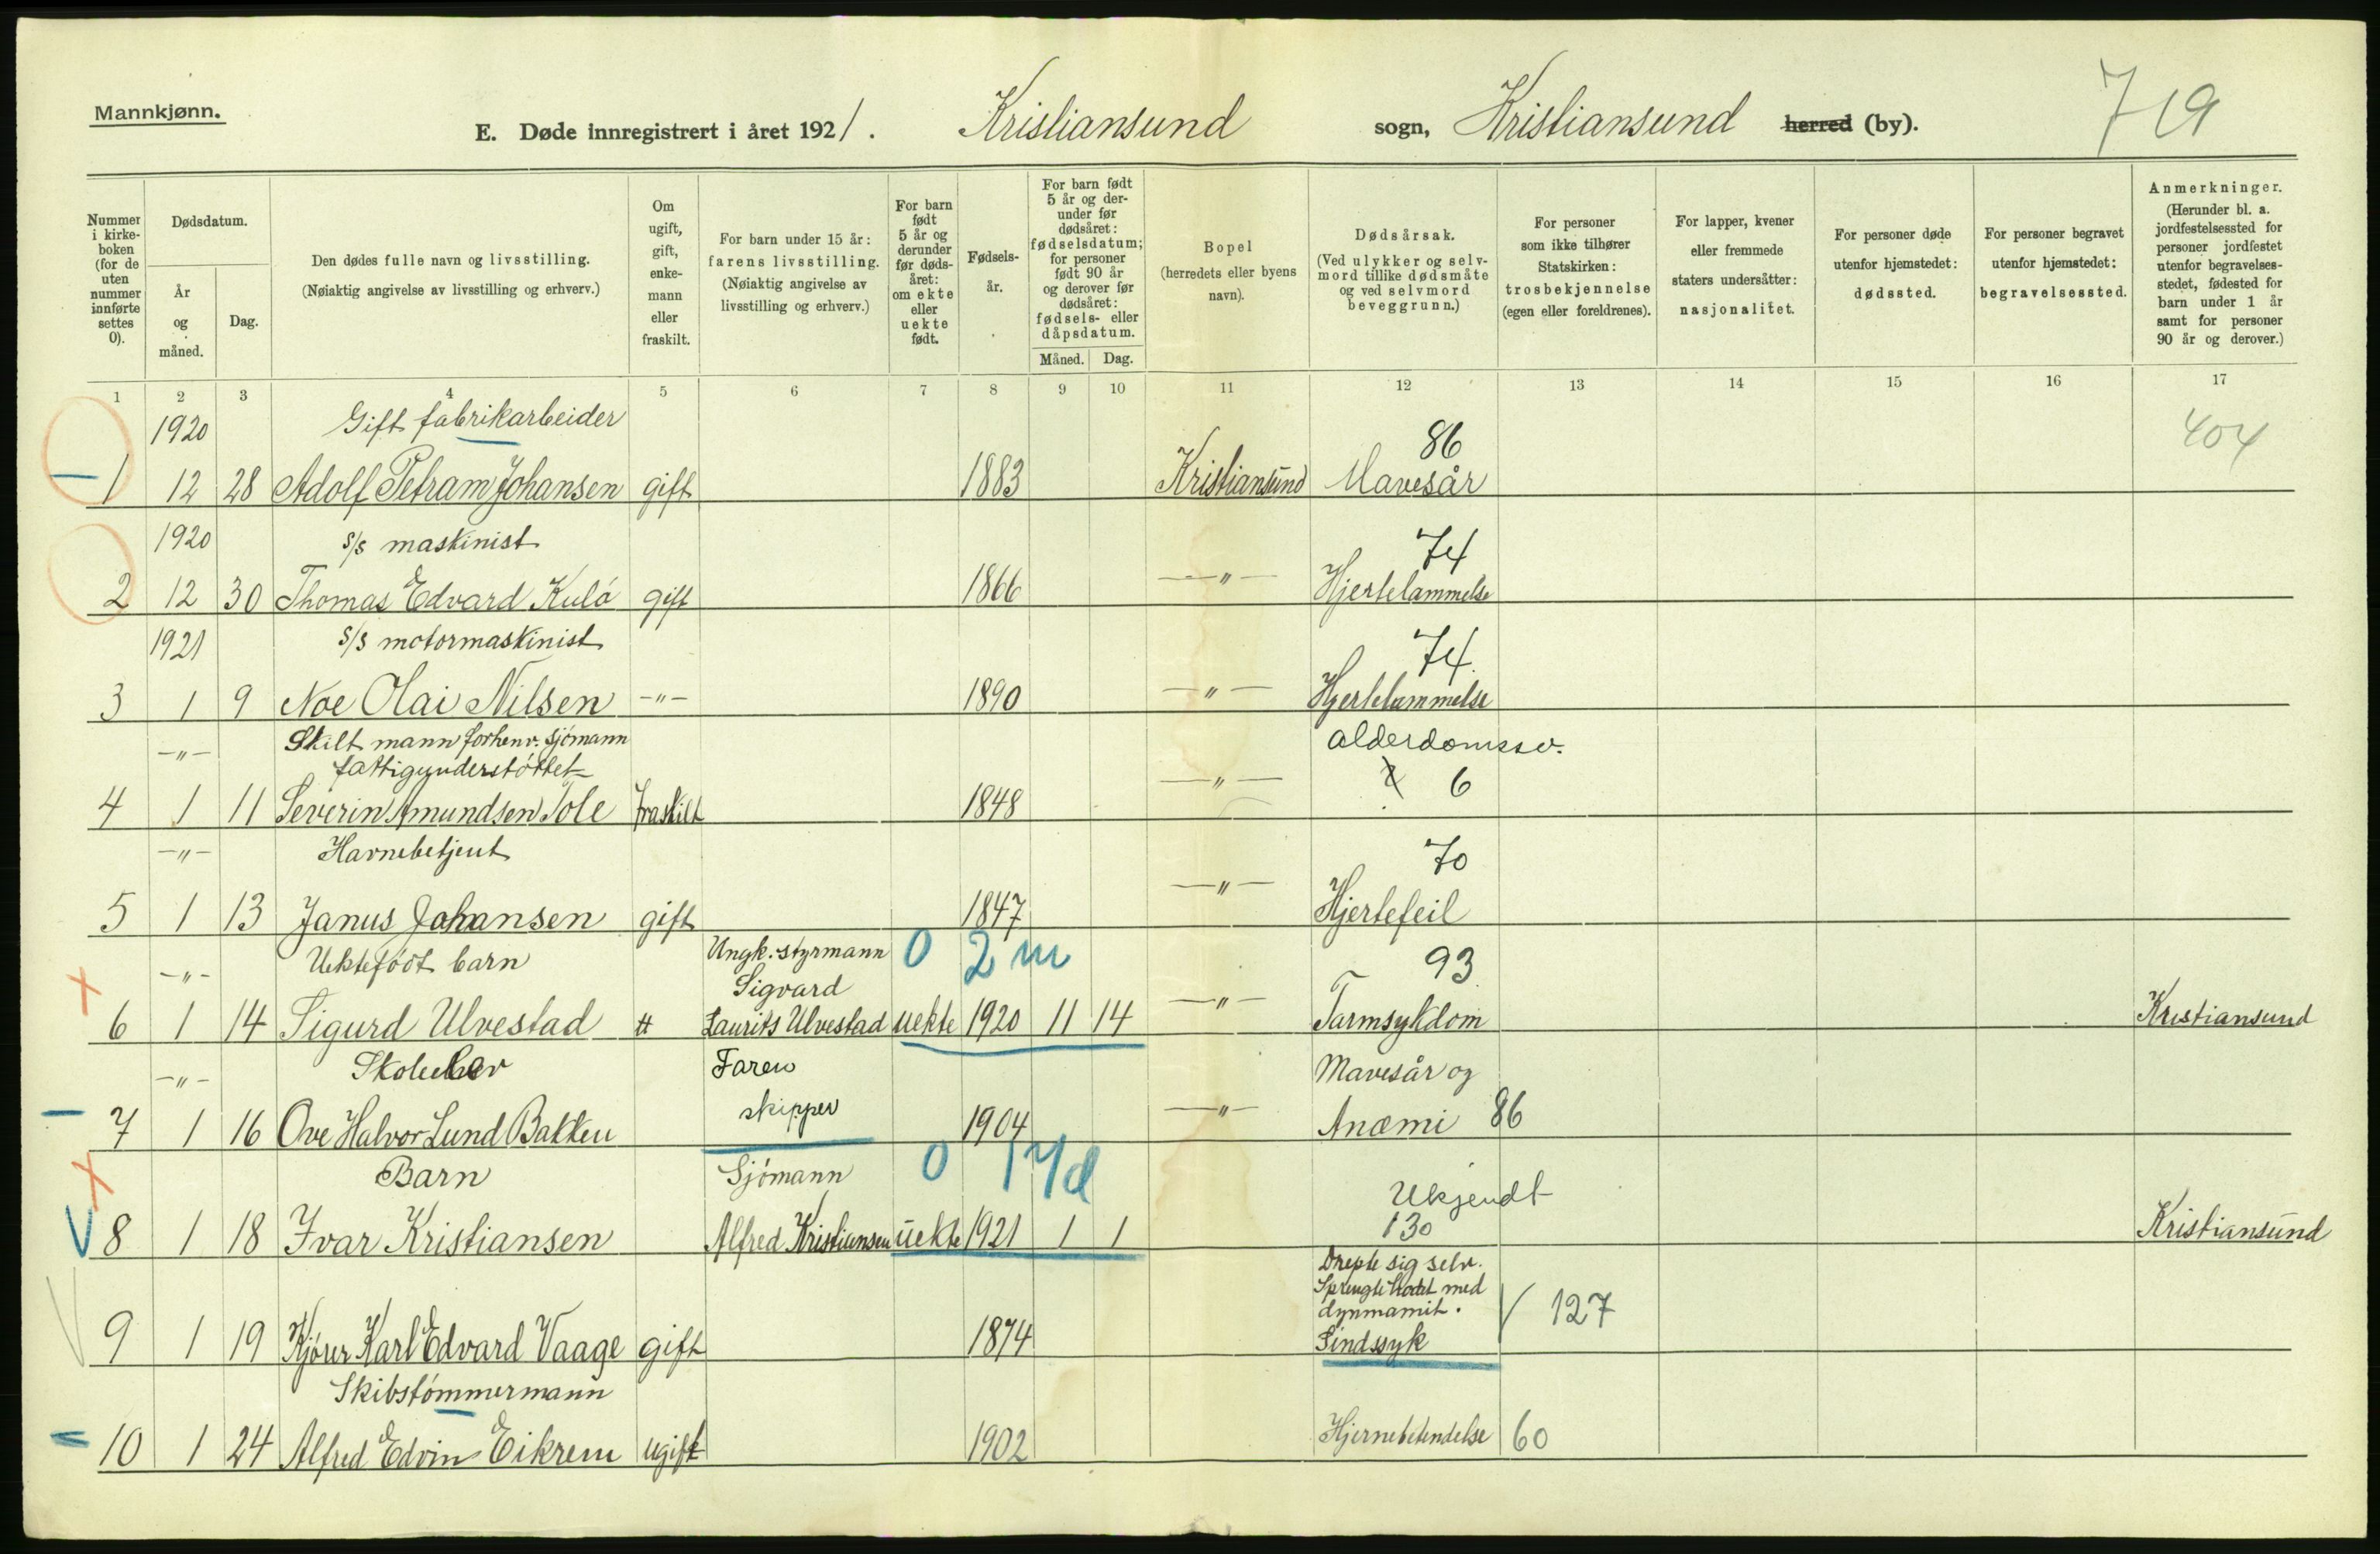 Mannkjønn.
E. Døde innregistrert i året 1921. Kristiansund sogn, Kristiansund herred (by). 719
Nummer i kirke- boken (for de uten nummer innførte settes 0).
Dødsdatum.
År og måned.
Dag.
Den dødes fulle navn og livsstilling.
(Nøiaktig angivelse av livsstilling og erhverv.)
Om ugift, gift, enke- mann eller fraskilt.
For barn under 15 år: farens livsstilling. (Nøiaktig angivelse av livsstilling og erhverv.)
For barn født 5 år og derunder før døds- året: om ekte eller uekte født.
Fødsels- år.
For barn født 5 år og der- under før dødsåret: fødselsdatum; for personer født 90 år og derover før dødsåret: fødsels- eller dåpsdatum.
Måned. Dag.
Bopel (herredets eller byens navn).
Dødsårsak. (Ved ulykker og selv- mord tillike dødsmåte og ved selvmord beveggrunn.)
For personer som ikke tilhører Statskirken: trosbekjennelse (egen eller foreldrenes).
For lapper, kvener eller fremmede staters undersåtter: nasjonalitet.
For personer døde utenfor hjemstedet: dødssted.
For personer begravet utenfor hjemstedet: begravelsessted.
Anmerkninger. (Herunder bl. a. jordfestelsessted for personer jordfestet utenfor begravelses- stedet, fødested for barn under 1 år samt for personer 90 år og derover.)
1 2 3 4 5 6 7 8 9 10 11 12 13 14 15 16 17
1920 Gift fabrikarbeider 86 404
1 12 28 Adolf Petram Johansen gift 1883 Kristiansund Mavesår
1920 s/s maskinist 74
2 12 30 Thomas Edvard Kulö gift 1866 -"- Hjertelammelse
1921 s/s motormaskinist 74.
3 1 9 Noe Olai Nilsen -"- 1890 -"- Hjertelammelse
-"- Skilt mann forhenv. sjömann alderdomssv.
fattigunderstöttet -"- 6
4 1 11 Severin Amundsen Tole fraskilt 1848
-"- Havnebetjent 70
5 1 13 Janus Johansen gift 1847 -"- Hjertefeil
-"- Uektefödt barn Ungk. styrmann 0 2 m 93
Sigvard
6 1 14 Sigurd Ulvestad Laurits Ulvestad uekte 1920 11 14 -"- Tarmsykdom Kristiansund
-"- Skoleelev Faren Mavesår og
skipper
7 1 16 Ove Halvor Lund Bakken 1904 -"- Anæmi 86
Barn Sjömann 0 17d Ukjendt
8 1 18 Ivar Kristiansen Alfred Kristiansen uekte 1921 1 1 130 Kristiansund
Drepte sig selv.
Sprengte hodet med
dynmamit. 127
9 1 19 Kjörer Karl Edvard Vaage gift 1874 Sindssyk
Skibstömmermann
10 1 24 Alfred Edvin Eikrem ugift 1902 Hjernebetendelse 60